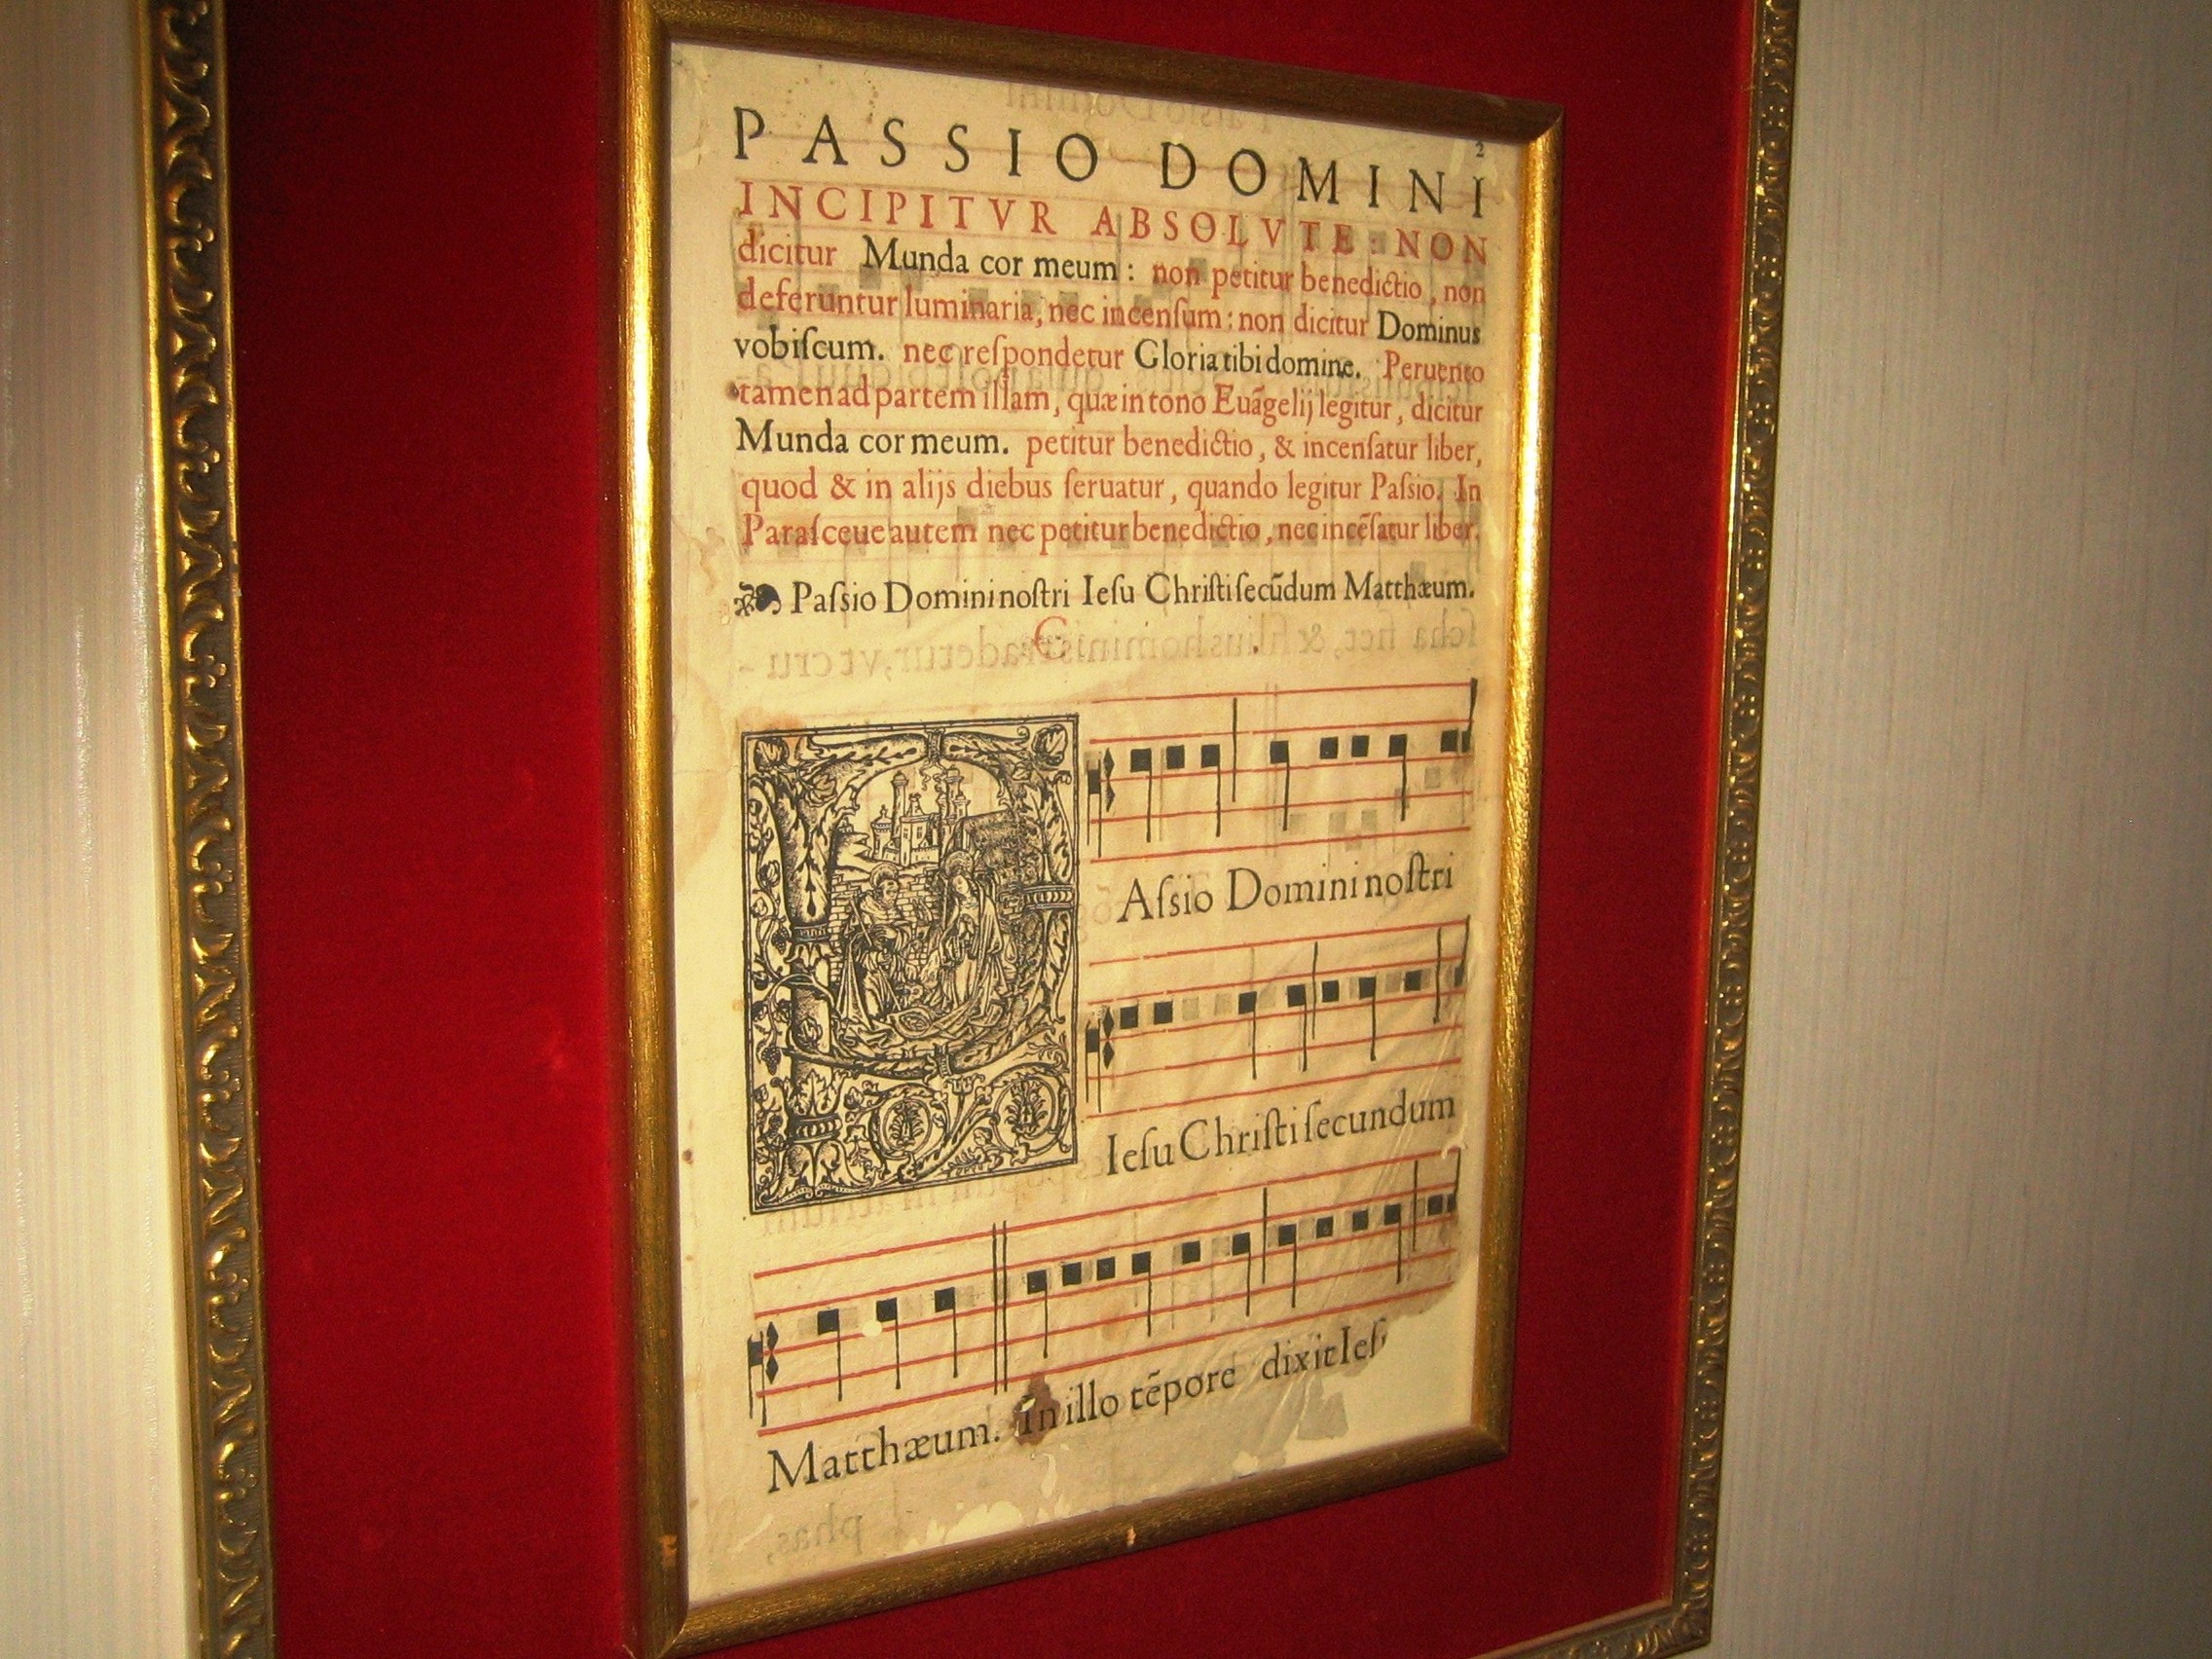 2
PASSIO DOMINI
INCIPITVR ABSOLVTE: NON
dicitur Munda cor meum: non petitur benedictio, non
deferuntur luminaria, nec incenſum: non dicitur Dominus
vobiſcum. nec reſpondetur Gloria tibi domine. Peruento
tamen ad partem illam, quæ in tono Euãgelij legitur, dicitur
Munda cor meum. petitur benedictio, & incenſatur liber,
quod & in alijs diebus ſeruatur, quando legitur Paſsio. In
Paraſceue autem nec petitur benedictio, nec incẽſatur liber.
Paſsio Domini noſtri Ieſu Chriſti ſecũdum Matthæum.
C
P
Aſsio Domini noſtri
Ieſu Chriſti ſecundum
Matthæum. In illo tẽpore dixit Ieſ